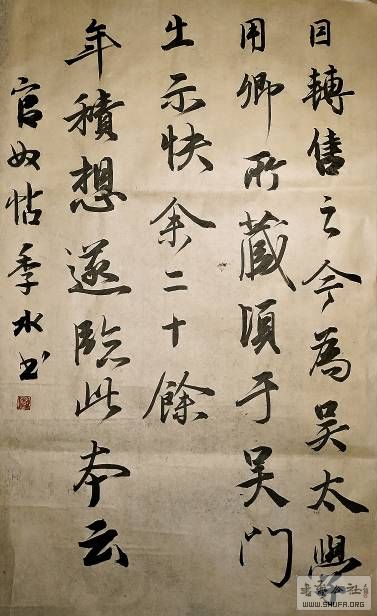 目轉售之今為吳太學
用卿所藏頃于吳門
出示快余二十餘
年積想遂臨此本云
官奴帖季水书
WWW.SHUFA.ORG